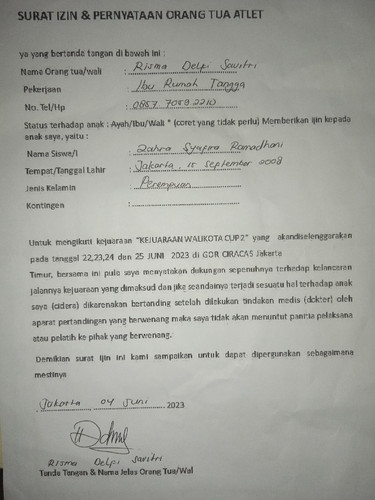 SURAT IZIN & PERNYATAAN ORANG TUA ATLET
ya yang bertanda tangan di bawah ini :
Nama Orang tua/wali : Risma Delpi Savitri
Pekerjaan : Ibu Rumah Tangga
No. Tel/Hp : 0857 7059 2210
Status terhadap anak : Ayah/Ibu/Wali * (coret yang tidak perlu) Memberikan Ijin kepada
anak saya, yaitu :
Nama Siswa/I : Zahra Syafira Ramadhani
Tempat/Tanggal Lahir : Jakarta, 15 September 2008
Jenis Kelamin : Perempuan
Kontingen :
Untuk mengikuti kejuaraan "KEJUARAAN WALIKOTA CUP 2" yang akandiselenggarakan
pada tanggal 22,23,24 dan 25 JUNI 2023 di GOR CIRACAS Jakarta
Timur, bersama ini pula saya menyatakan dukungan sepenuhnya terhadap kelancaran
jalannya kejuaraan yang dimaksud dan jika seandainya terjadi sesuatu hal terhadap anak
saya (cidera) dikarenakan bertanding setelah dilakukan tindakan medis (dokter) oleh
aparat pertandingan yang berwenang maka saya tidak akan menuntut panitia pelaksana
atau pelatih ke pihak yang berwenang.
Demikian surat Ijin ini kami sampaikan untuk dapat dipergunakan sebagaimana
mestinya
Jakarta, 04 Juni 2023
Risma Delpi Savitri
Tanda Tangan & Nama Jelas Orang Tua/Wal